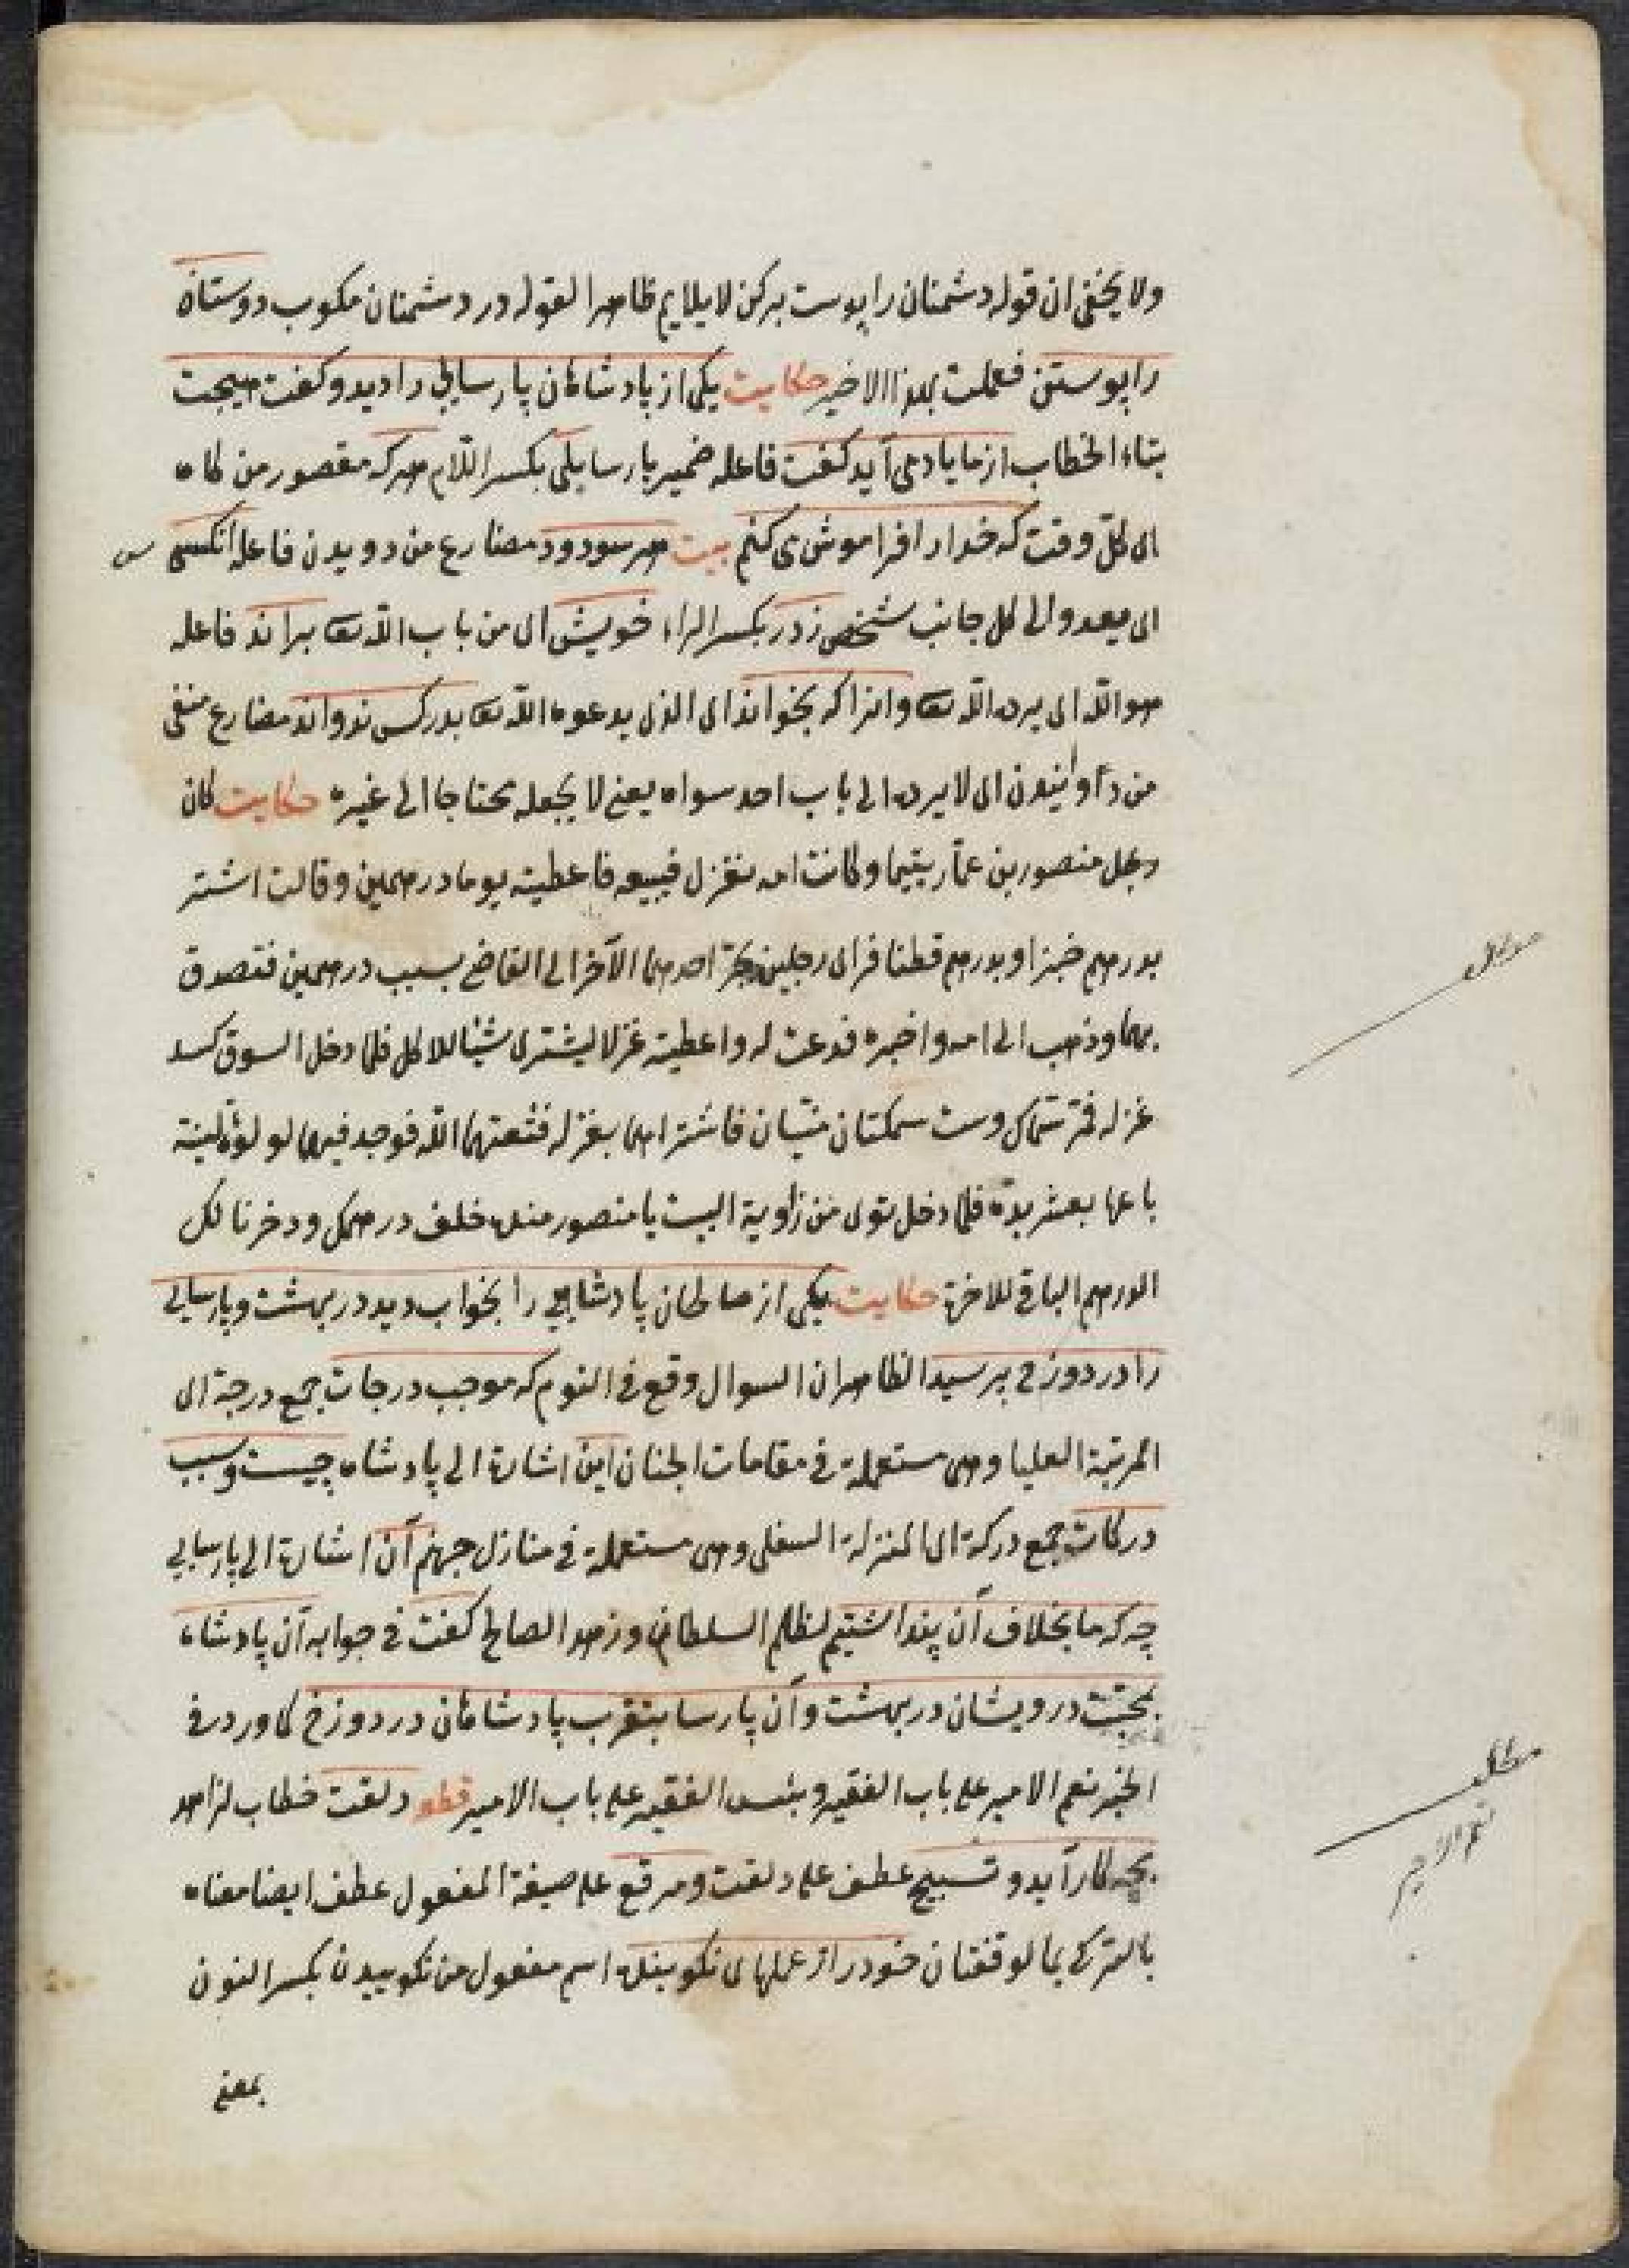 ولا يخفى ان قوله دشمنان را پوست بركن لا يلايم ظاهرا لقوله در دشمنان مكوب دوستان
را پوستن فعملت بهذا الاخير حكايت يكى از پادشاهان پارسايى را ديد وكفت هيچت
بتاء الخطاب از ما ياد مى آيد كفت فاعله ضمير پارسا بلى بكسر اللام هركه مقصور من كاه
اى كل وقت كه خدا را فراموش مى كنم بيت هر سو دود مضارع من دويدن فاعله انكس
اى يعدو الى كل جانب شخص ز در بكسر الراء خويش اى من باب الله تعا براند فاعله
هو الله اى يرده الله تعا وانرا كه بخواند اى الذى يدعوه الله تعا بدركس ندواند مضارع منفى
من دوانيدن اى لا يرده الى باب احد سواه يعنى لا يجعله محتاجا الى غيره حكايت كان
رجل منصور بن عمار يتيما وكانت امه تغزل فيبيعه فاعطيته يوما درهمين وقالت اشتر
بدرهم خبزا وبدرهم قطنا فراى رجلين يجرّ احدهما الآخر الى القاضى بسبب درهمين فتصدق
بهما وذهب الى امه واخبره فدعت له واعطيته غزلا ليشترى شيئا للاكل فلما دخل السوق كسد
غزله فمرّ سمّاك وست سمكتان فاشتراهما بغزله فوجد فيهما لولؤة ثمينة
باعها بعشر بدرة فلما دخل نودى من زاوية البيت يا منصور خلف درهمك ودخرنا لك
الدرهم الباقى للاخرة حكايت يكى از صالحان پادشاهى را بخواب ديد در بهشت وپارسايى
را در دوزخ پرسيد الظاهر ان السوال وقع فى النوم كه موجب درجات جمع درجة اى
المرتبة العليا وهى مستعملة فى مقامات الجنان اين اشارة الى پادشاه چيست وسبب
دركات جمع دركة اى المنزلة السفلى وهى مستعملة فى منازل جهنم آن اشارة الى پارسايى
چه كه ما بخلاف آن پنداشتيم لظلم السلطان وزهد الصالح كفت فى جوابه آن پادشاه
بمحبت درويشان در بهشت وآن پارسا بتقرب پادشاهان در دوزخ كما ورد فى
الخبر نعم الامير على باب الفقير وبئس الفقير على باب الامير قطعه دلقت خطاب لزاهد
بچه كار آيد وتسبيح عطف على دلقت ومرقع على صيغة المفعول عطف ايضا معناه
بالتركى خود را از عملهاى نكوهيده اسم مفعول من نكوهيدن بكسر النون
بمعنى
مطلب
مطلب
نعم الامير